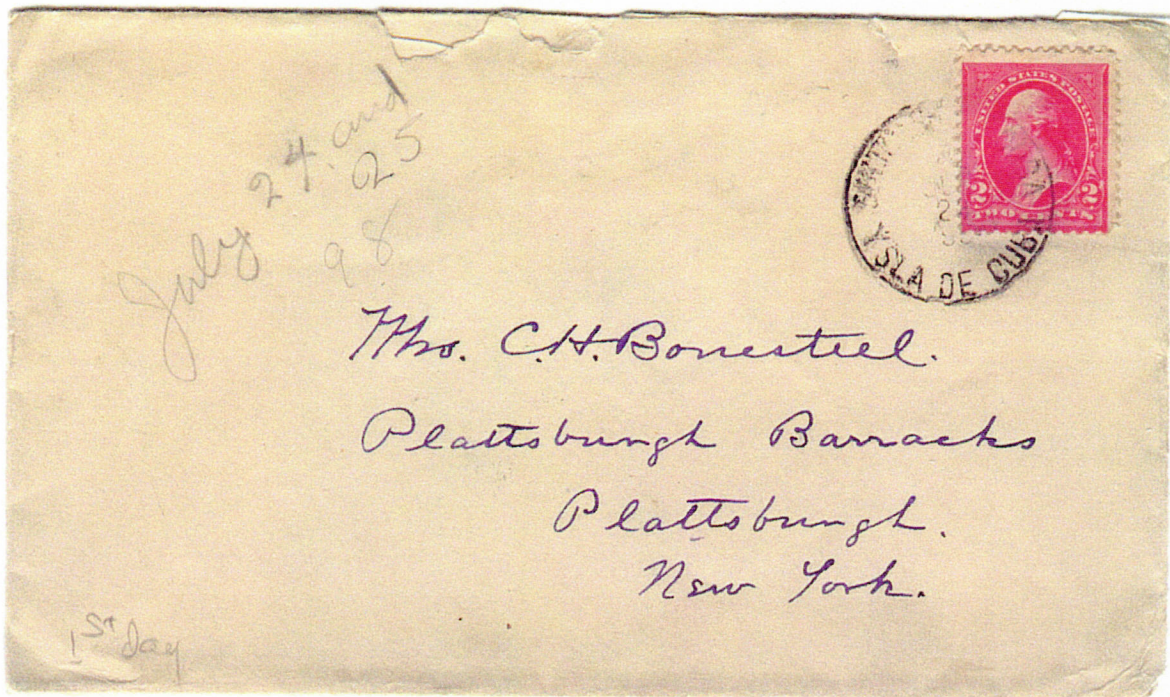 July 24 and
25
98
UNITED STATES POSTAGE
2 2
TWO CENTS
YSLA DE CUBA
Mrs. C.H. Bonesteel.
Plattsburgh Barracks
Plattsburgh.
New York.
1st day